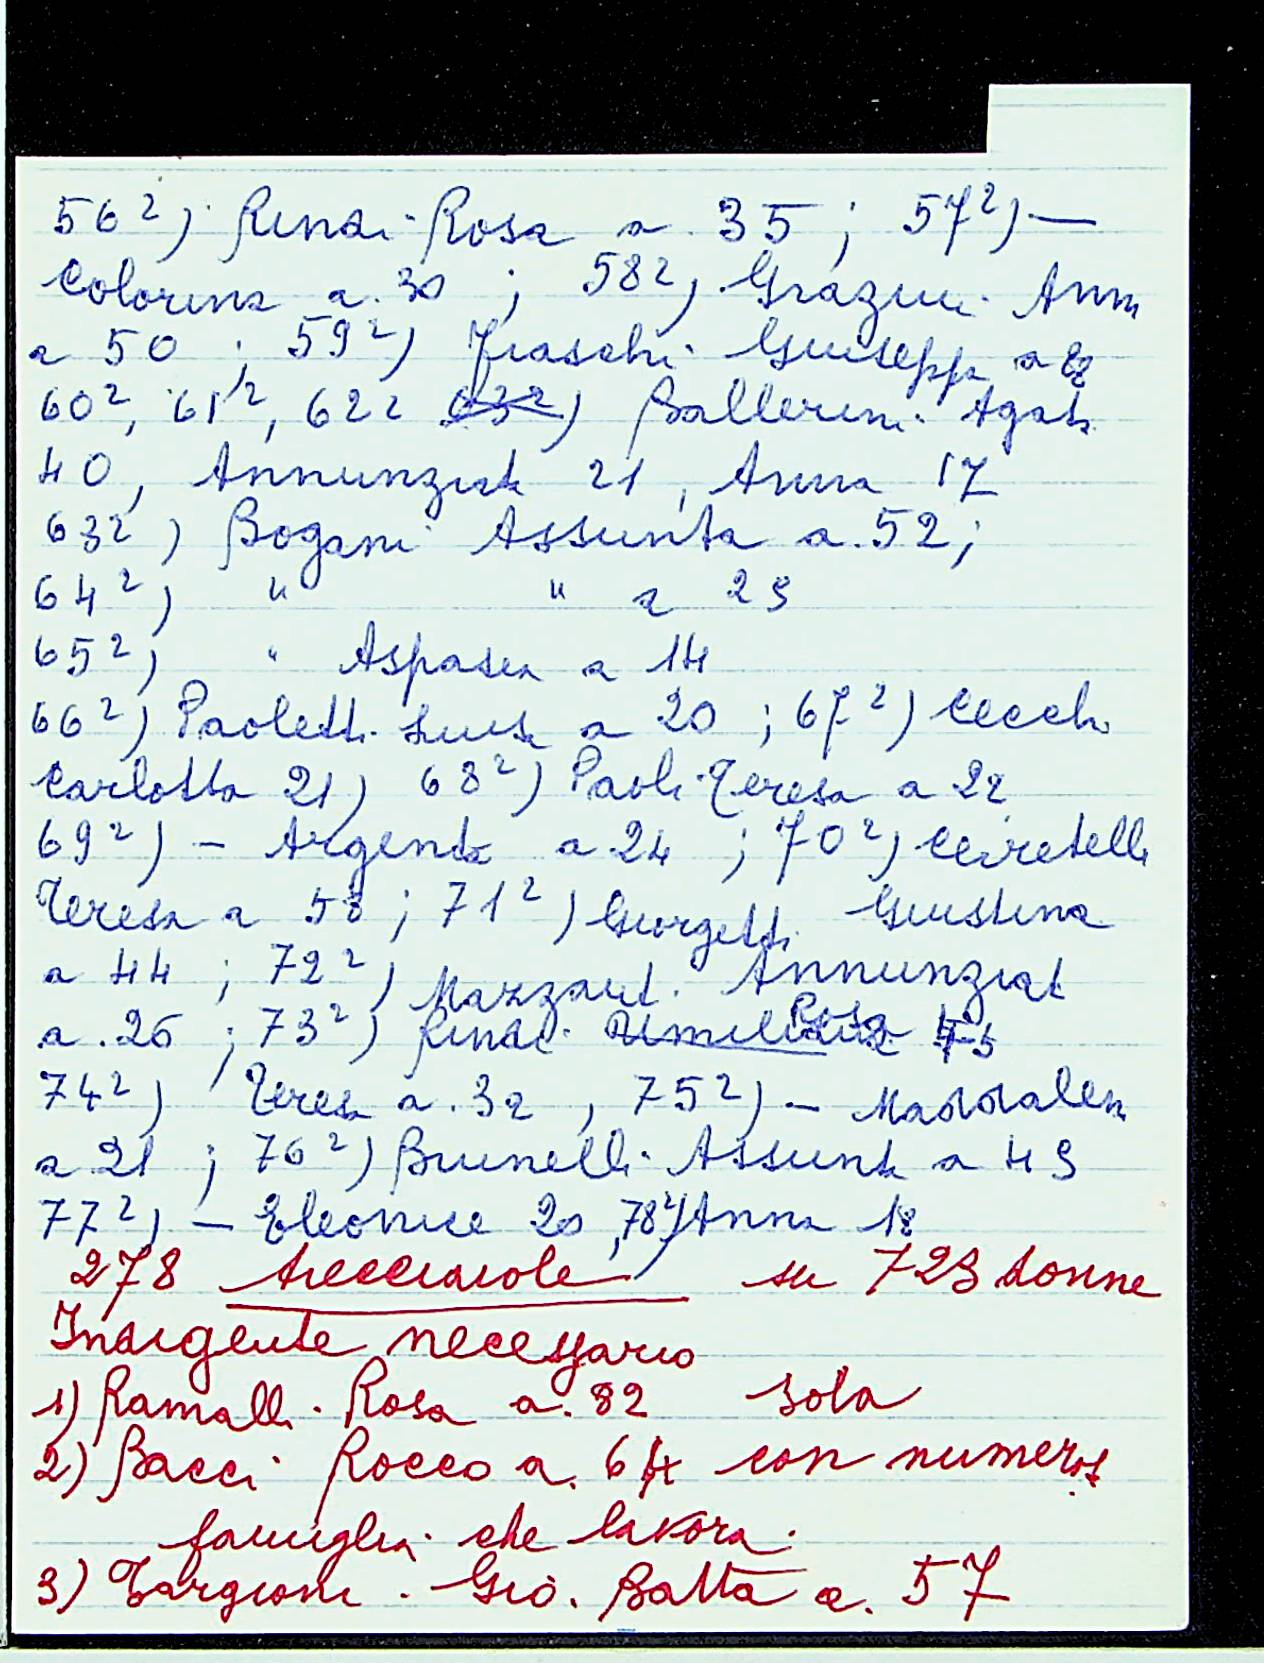 56²) Rindi Rosa a 35 ; 57²) —
Colorina a. 30 ; 58²) Grazini Anna
a 50 ; 59²) Fraschi Giuseppa a
60², 61², 622 632) Ballerini Agata
40, Annunziata 21, Anna 17
632) Bogani Assunta a. 52;
64²) " " a 29
65²) " Aspasia a 14
66²) Paoletti Luisa a 20 ; 67²) Cecchi
Carlotta 21) 68²) Paoli Teresa a 22
69²) – Argenta a 24 ; 70²) Ceiretelli
Teresa a 58 ; 71²) Giorgetti Giustina
a 44 ; 72²) Mazzanti Annunziat
a. 26 ; 73²) Rindi Umiliana Rosa 45
74²) Teresa a. 32 , 75²) – Maddalena
a 21 ; 76²) Brunelli Assunta a 49
77²) – Eleonice 20, 78²) Anna 18
278 trecciaiole su 729 donne
Indigente necessario
1) Ramalli Rosa a. 82 sola
2) Bacci Rocco a. 64 con numerosa
famiglia che lavora.
3) Targioni Gio. Batta a. 57